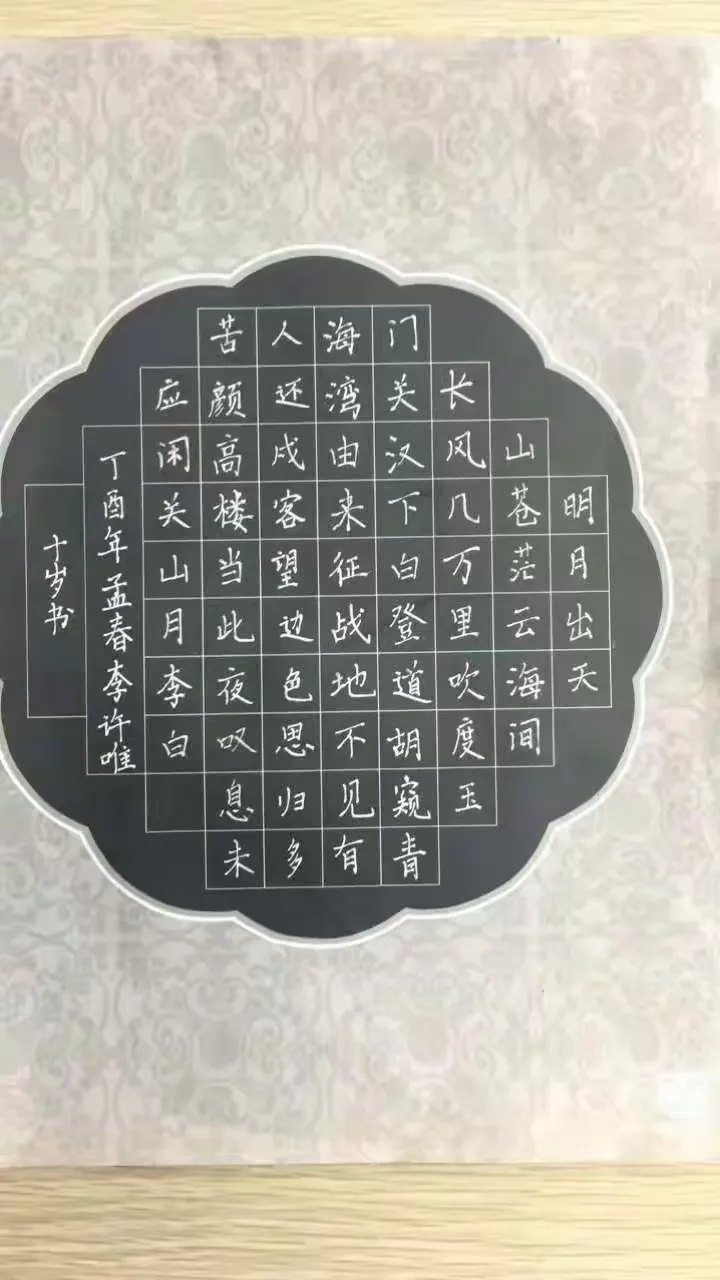 明月出天
山苍茫云海间
长风几万里吹度玉
门关汉下白登道胡窥青
海湾由来征战地不见有
人还戍客望边色思归多
苦颜高楼当此夜叹息未
应闲关山月李白
丁酉年孟春李许唯
十岁书